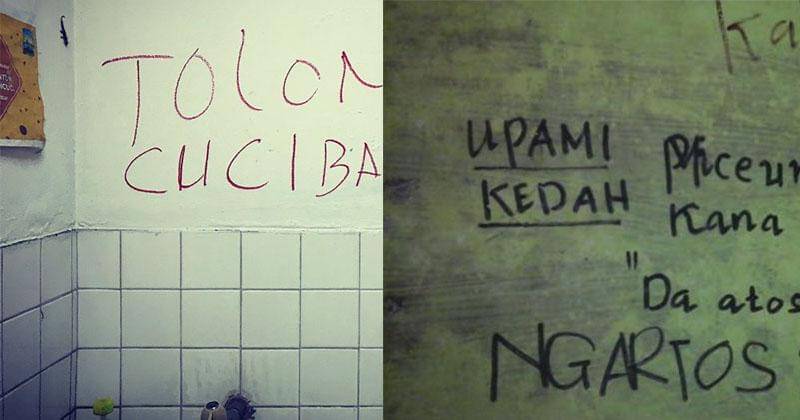 TOLON
CUCIBA
Ka
UPAMI
KEDAH
Kana
"Da atos
NGARTOS